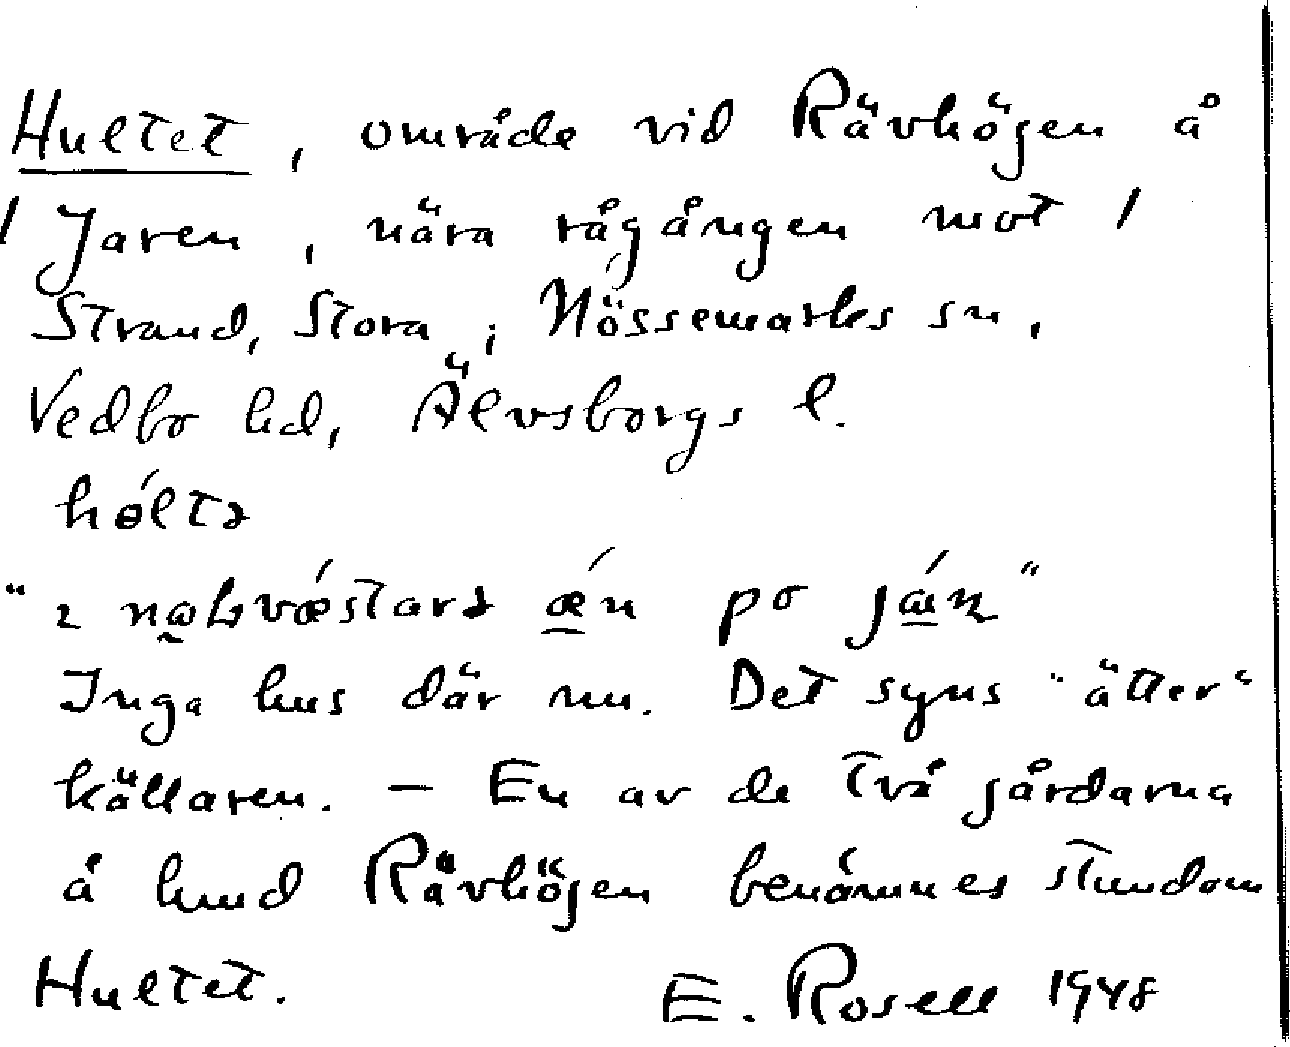 Hultet, område vid Rävhögen å
/ Jaren, nära rågången mot /
Strand, Stora, i Nössemarks sn,
Vedbo hd, Älvsborgs l.
hóltə
Inga hus där nu. Det syns "ätter"
källaren. — En av de två gårdarna
å hmd Rävhögen benämnes stundom
Hultet. E. Rosell 1948